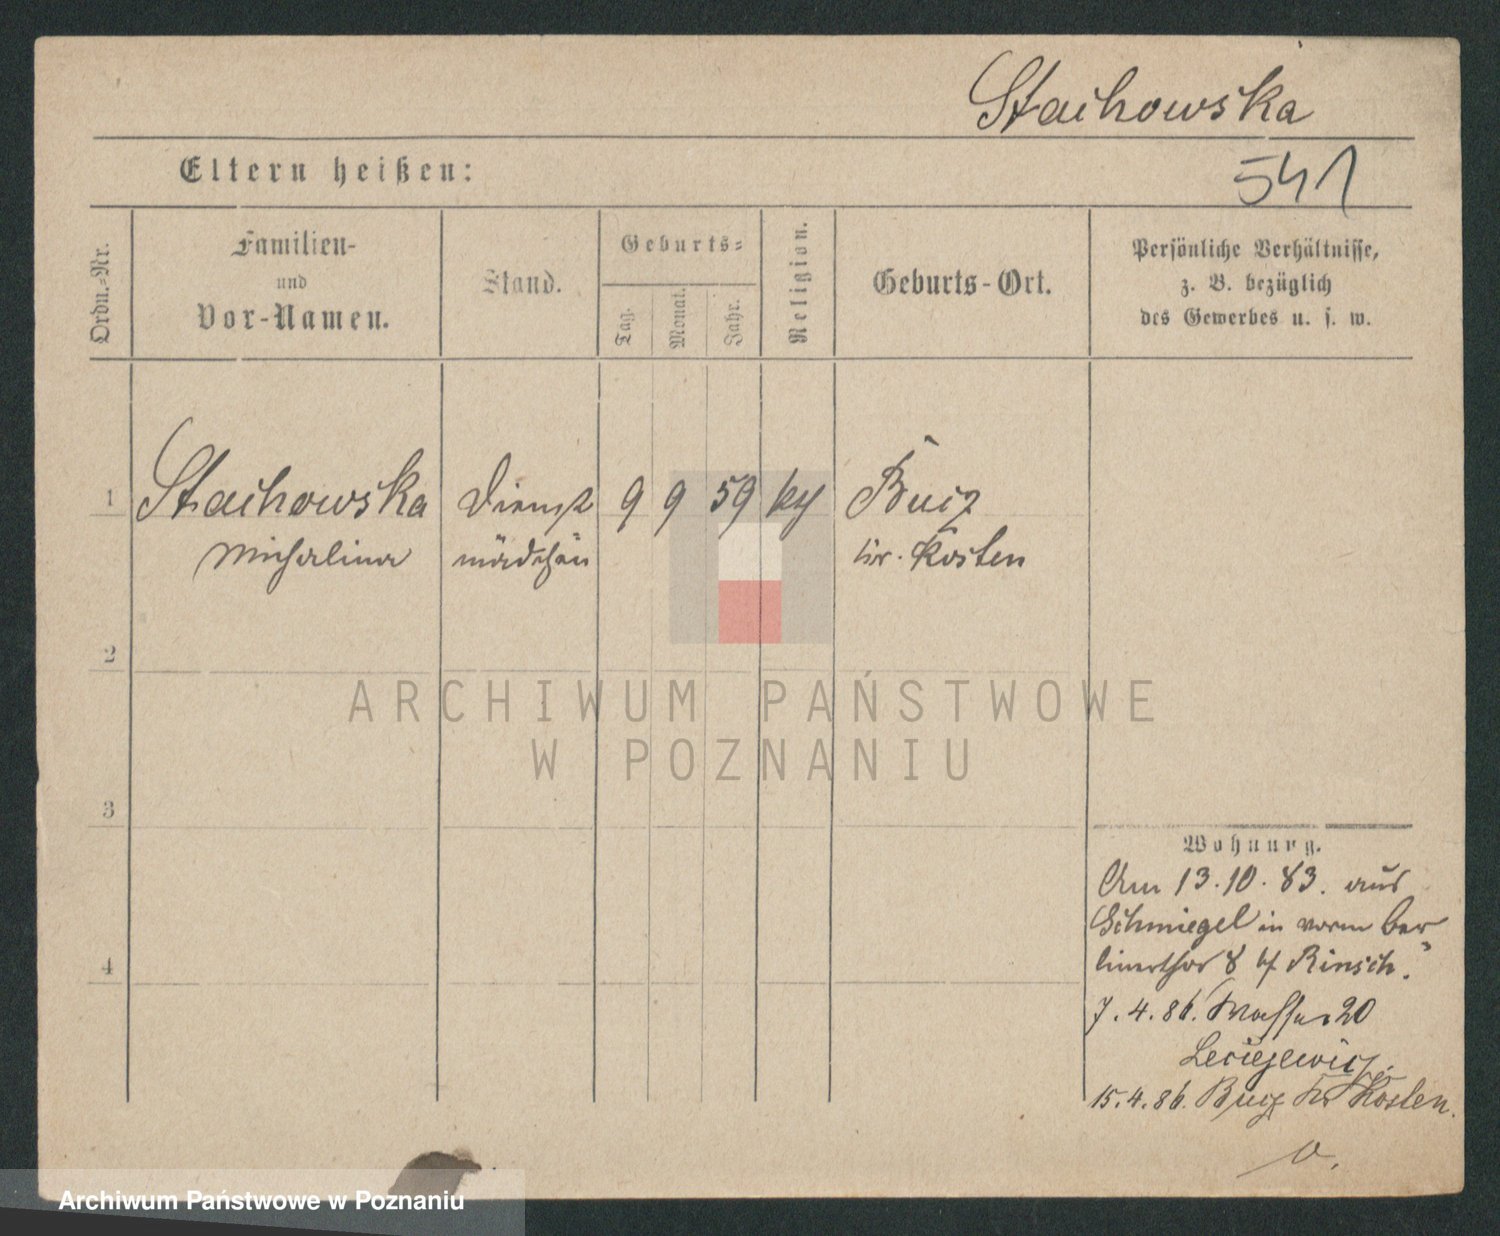 Stachowska
Eltern heißen:
541
Ordn.-Nr.
Familien-
und
Vor-Namen.
Stand.
Geburts-
Tag.
Monat.
Jahr.
Religion.
Geburts-Ort.
Persönliche Verhältnisse,
z. B. bezüglich
des Gewerbes u. s. w.
1 Stachowska Dienst 9 9 59 Bucz
Michalina mädchen Kr. Kosten
2
ARCHIWUM PAŃSTWOWE
W POZNANIU
3
Wohnung.
Am 13.10.83. aus
Schmiegel in vorm Ber
linerthor 8 b/ Rinsch.
4
7.4.86. Wasser 20
Leciejewicz.
15.4.86. Bucz Kr Kosten.
Archiwum Państwowe w Poznaniu